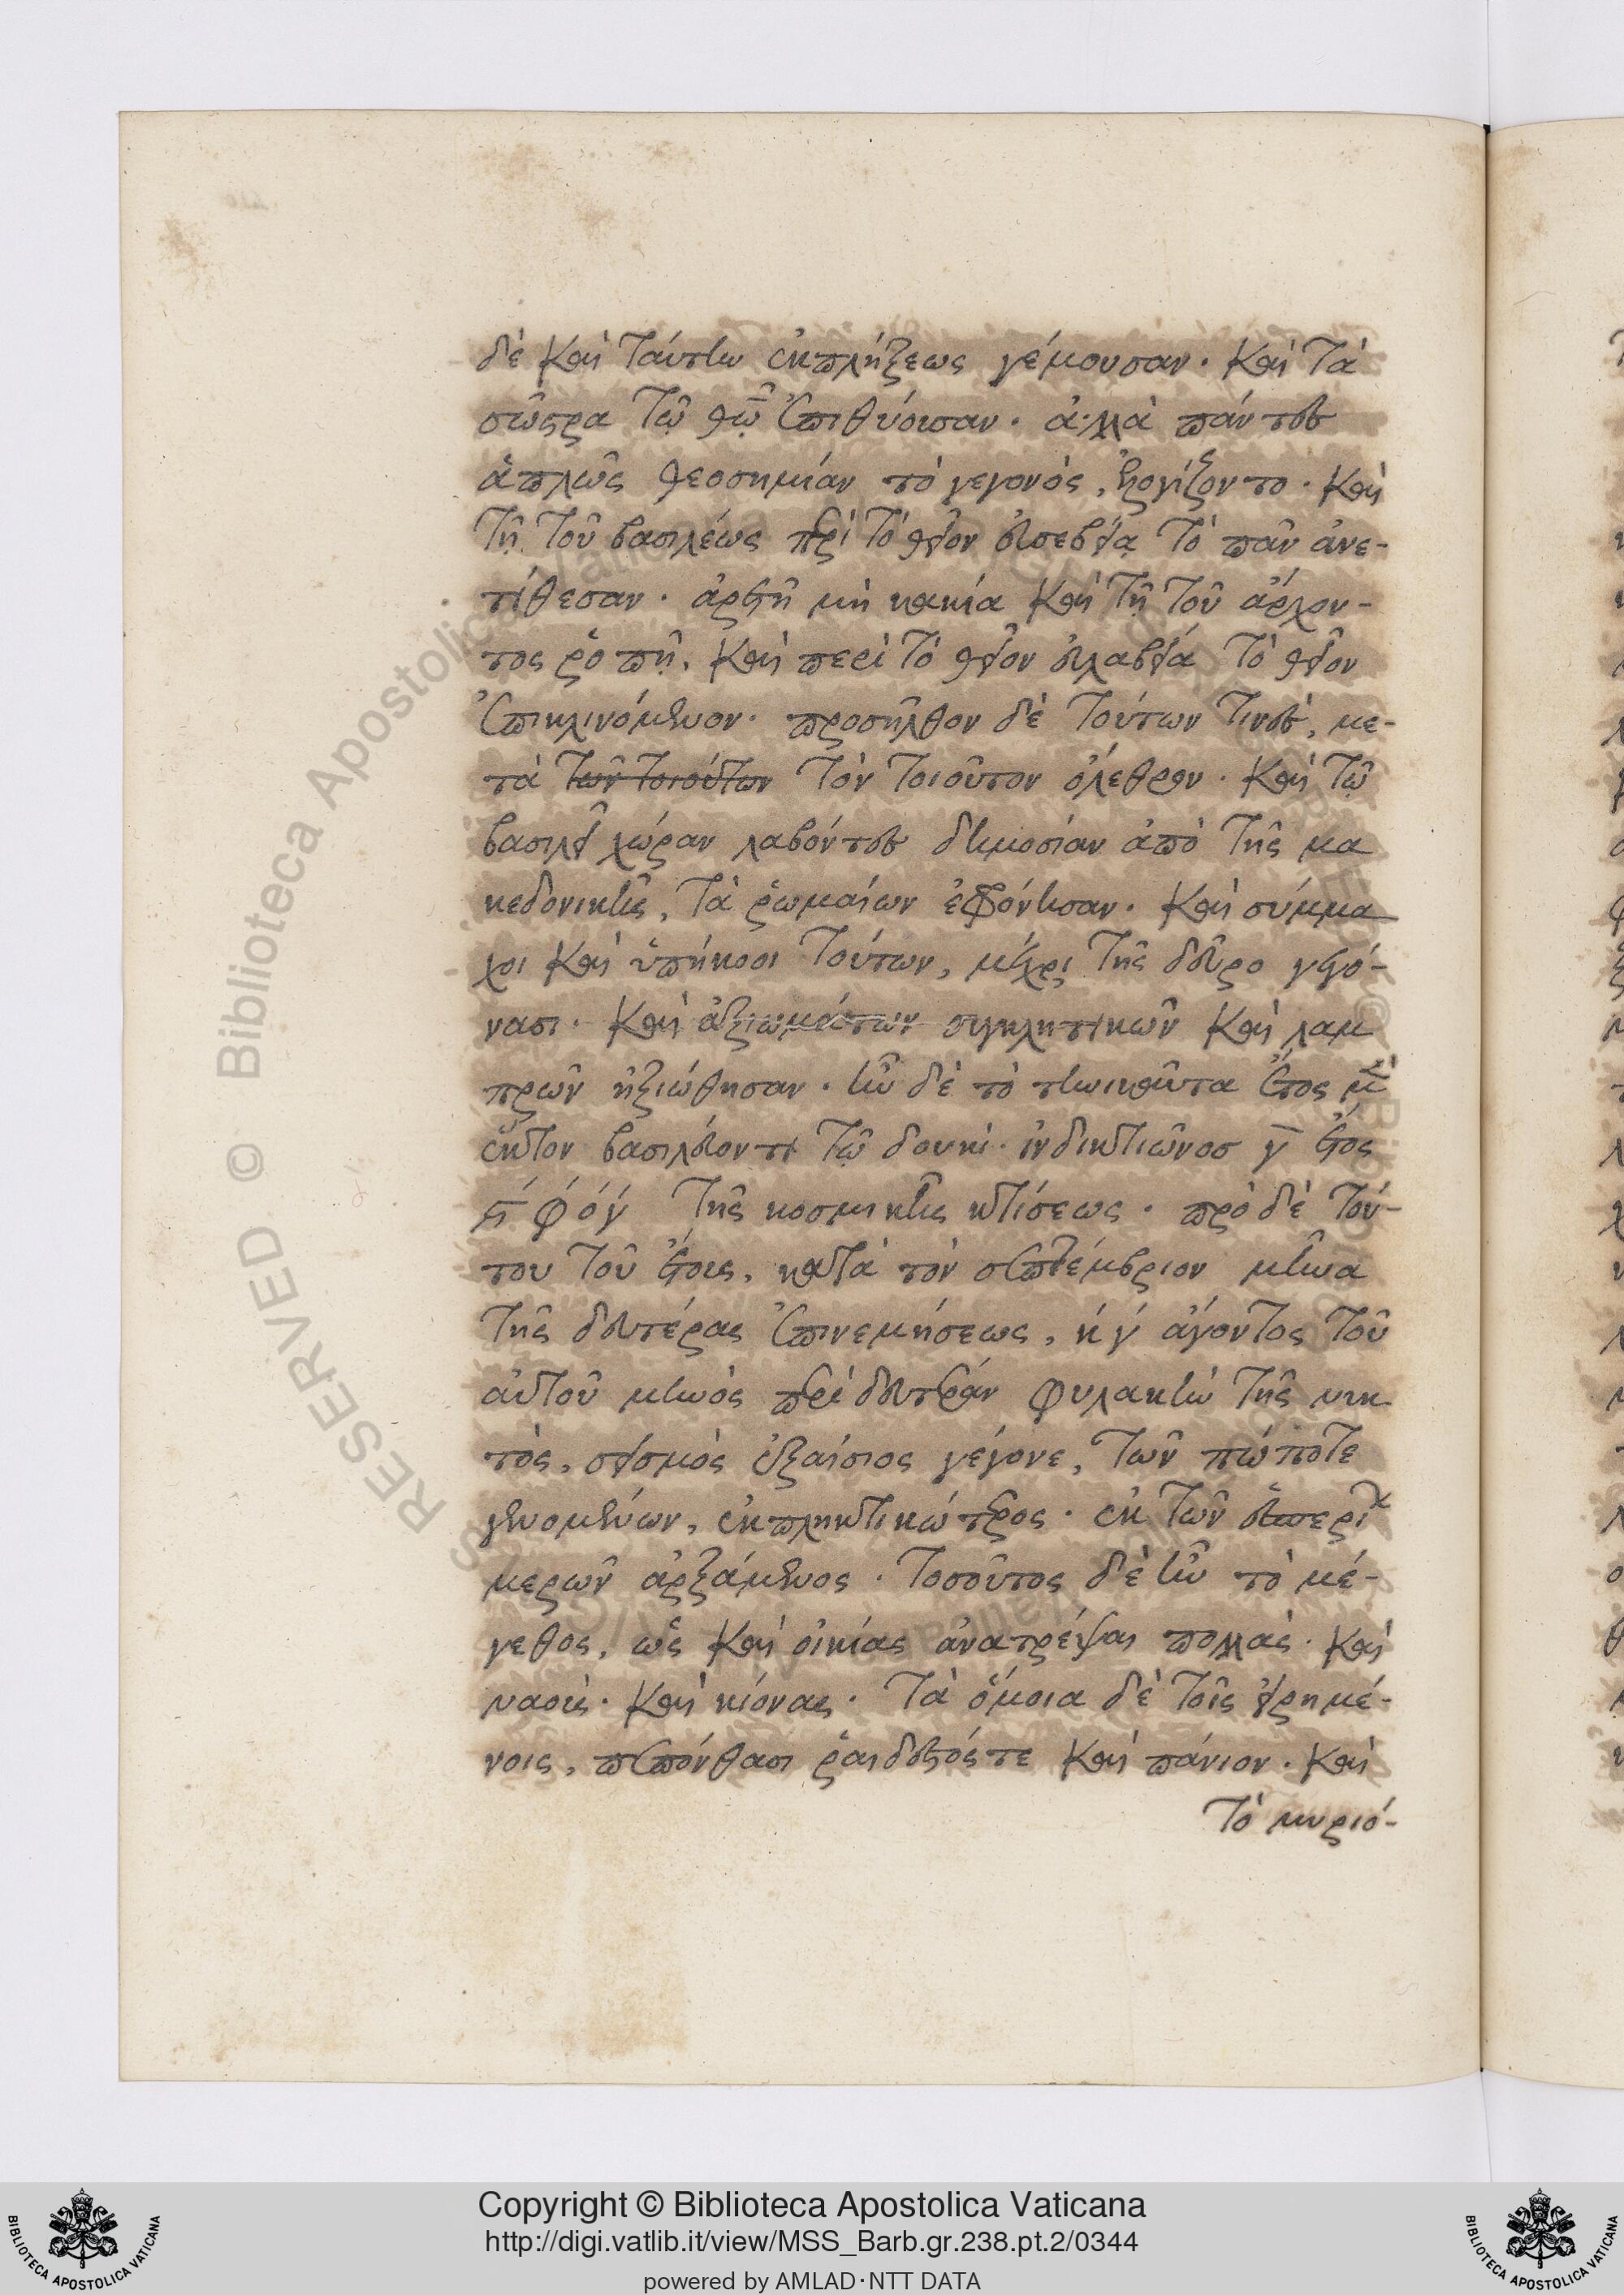 δὲ καὶ ταύτην ἐκπλήξεως γέμουσαν. καὶ τὰ
σῶστρα τῷ θῷ ἐπιθύουσαν. ἀλλὰ πάντες
ἁπλῶς θεοσημίαν τὸ γεγονὸς, ἐλογίζοντο. καὶ
τῇ τοῦ βασιλέως περὶ τὸ θεῖον εὐσεβείᾳ τὸ πᾶν ἀνε-
τίθεσαν. ἀρετῇ μὴ κακία καὶ τῇ τοῦ ἄρχον-
τος ῥοπῇ. καὶ περὶ τὸ θεῖον εὐλαβείᾳ τὸ θεῖον
ἐπικλινόμενον. προσῆλθον δὲ τούτων τινὲς, με-
τὰ τῶν τοιούτων τὸν τοιοῦτον ὄλεθρον. καὶ τῷ
βασιλεῖ χώραν λαβόντες δημοσίαν ἀπὸ τῆς μα
κεδονικῆς, τὰ ῥωμαίων ἐφρόντισαν. καὶ σύμμα
χοι καὶ ὑπήκοοι τούτων, μέχρι τῆς δεῦρο γεγό-
νασι. καὶ ἀξιωμάτων συγκλητικῶν καὶ λαμ
πρῶν ἠξιώθησαν. ἦν δὲ τὸ τηνικαῦτα ἔτος
ἕκτον βασιλεύοντι τῷ δουκὶ. ἰνδικτιῶνος γ ἔτος
ϛφογ τῆς κοσμικῆς κτίσεως. πρὸ δὲ τού-
του τοῦ ἔτους, κατὰ τὸν σεπτέμβριον μῆνα
τῆς δευτέρας ἐπινεμήσεως, κγ ἄγοντος τοῦ
αὐτοῦ μηνὸς περὶ δευτέραν φυλακὴν τῆς νυκ
τὸς, σεισμὸς ἐξαίσιος γέγονε, τῶν πώποτε
γενομένων, ἐκπληκτικώτερος. ἐκ τῶν ἑσπερι
μερῶν ἀρξάμενος. τοσοῦτος δὲ ἦν τὸ μέ-
γεθος, ὡς καὶ οἰκίας ἀνατρέψαι πολλὰς. καὶ
ναοὺς. καὶ κίονας. τὰ ὅμοια δὲ τοῖς εἰρημέ-
νοις, πεπόνθασι ῥαιδεστός τε καὶ πάνιον. καὶ
τὸ μυριό-
RESERVED © Biblioteca Apostolica Vaticana
Copyright © Biblioteca Apostolica Vaticana
http://digi.vatlib.it/view/MSS_Barb.gr.238.pt.2/0344
powered by AMLAD·NTT DATA
BIBLIOTECA APOSTOLICA VATICANA
BIBLIOTECA APOSTOLICA VATICANA